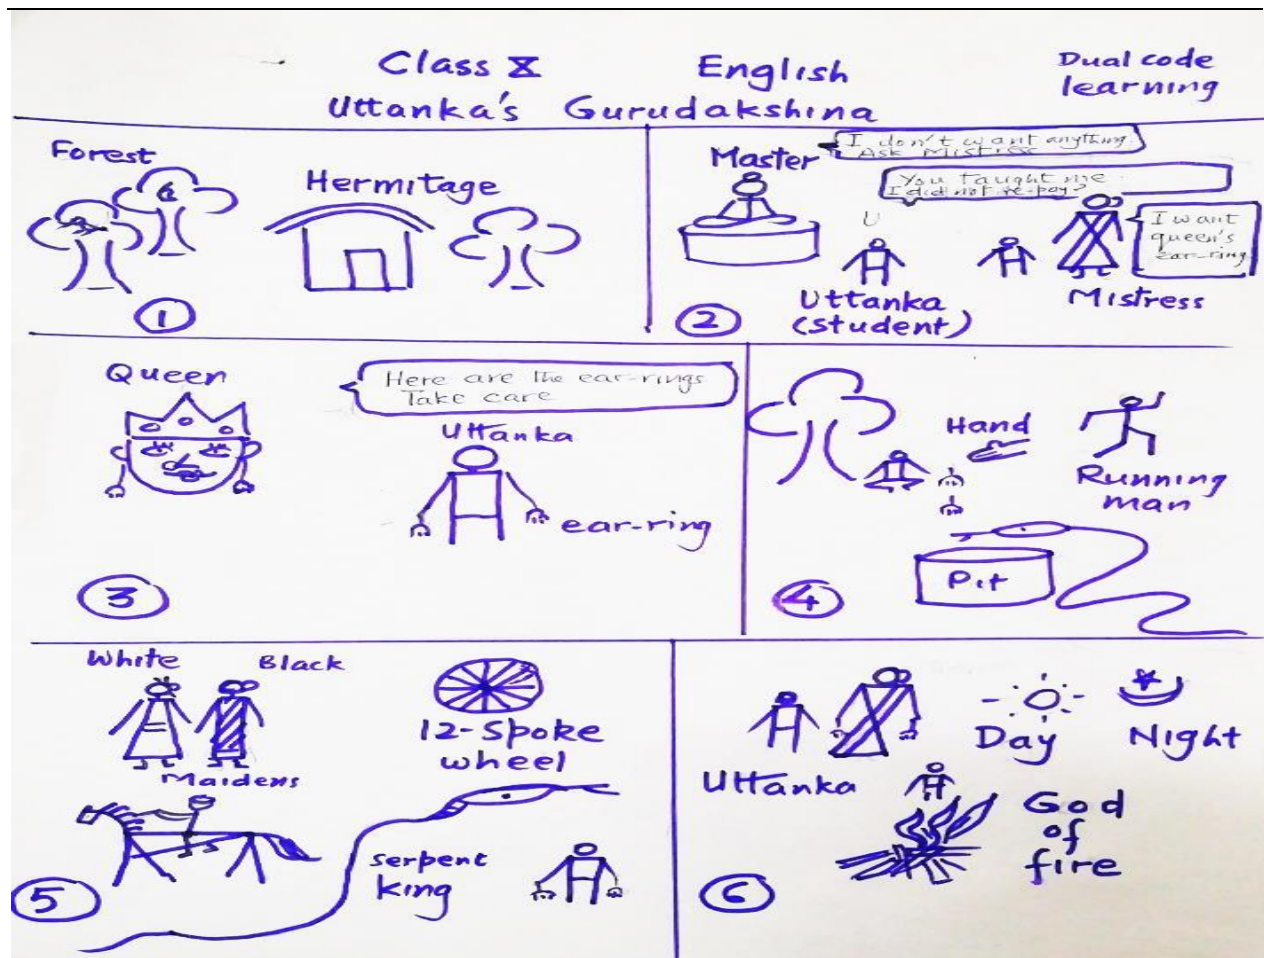 Class X English Dual code learning
Uttanka's Gurudakshina
Forest
Hermitage
1
Master
I don't want anything.
Ask Mistress
You taught me.
I did not re-pay?
U
I want
queen's
ear-ring
Uttanka
(student)
Mistress
2
Queen
Here are the ear-rings
Take care
Uttanka
ear-ring
3
Hand
Running
man
Pit
4
White
Black
Maidens
12-Spoke
wheel
serpent
king
5
Uttanka
Day
Night
God
of
fire
6